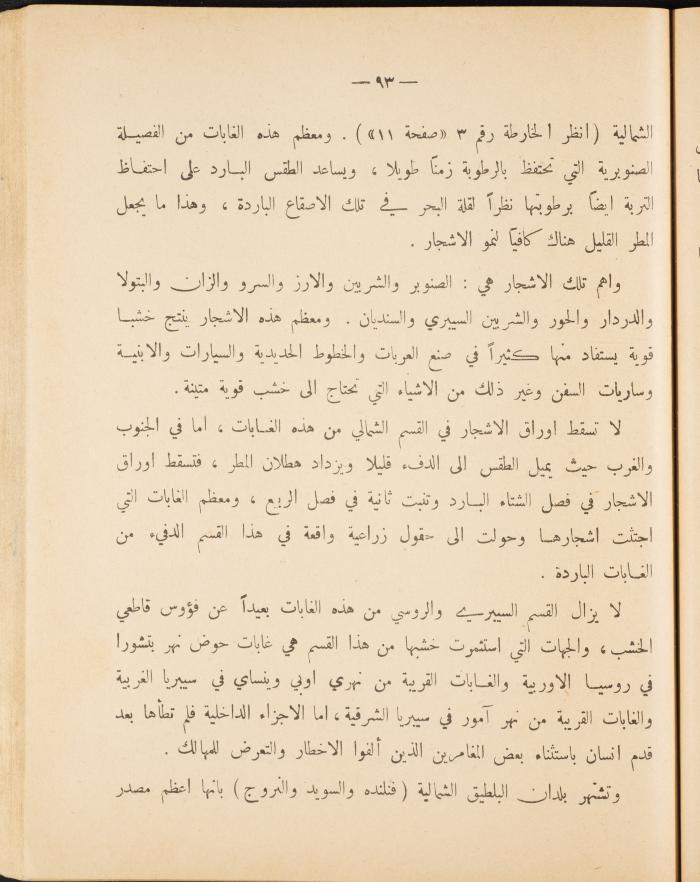 — ٩٣ —
الشمالية (انظر الخارطة رقم ٣ «صفحة ١١») . ومعظم هذه الغابات من الفصيلة
الصنوبرية التي تحتفظ بالرطوبة زمنًا طويلا ، ويساعد الطقس البارد على احتفاظ
التربة ايضًا برطوبتها نظراً لقلة البحر في تلك الاصقاع الباردة ، وهذا ما يجعل
المطر القليل هناك كافيًا لنمو الاشجار .
واهم تلك الاشجار هي : الصنوبر والشربين والارز والسرو والزان والبتولا
والدردار والحور والشربين السيبري والسنديان . ومعظم هذه الاشجار ينتج خشبا
قوية يستفاد منها كثيراً في صنع العربات والخطوط الحديدية والسيارات والابنية
وساريات السفن وغير ذلك من الاشياء التي تحتاج الى خشب قوية متينة .
لا تسقط اوراق الاشجار في القسم الشمالي من هذه الغابات ، اما في الجنوب
والغرب حيث يميل الطقس الى الدفء قليلا ويزداد هطلان المطر ، فتسقط اوراق
الاشجار في فصل الشتاء البارد وتنبت ثانية في فصل الربيع ، ومعظم الغابات التي
اجتثت اشجارها وحولت الى حقول زراعية واقعة في هذا القسم الدفيء من
الغابات الباردة .
لا يزال القسم السيبري والروسي من هذه الغابات بعيداً عن فؤوس قاطعي
الخشب ، والجهات التي استثمرت خشبها من هذا القسم هي غابات حوض نهر بتشورا
في روسيا الاوربية والغابات القريبة من نهري اوبي وينساي في سيبريا الغربية
والغابات القريبة من نهر آمور في سيبريا الشرقية ، اما الاجزاء الداخلية فلم تطأها بعد
قدم انسان باستثناء بعض المغامرين الذين ألفوا الاخطار والتعرض للمهالك .
وتشتهر بلدان البلطيق الشمالية (فنلنده والسويد والنروج) بانها اعظم مصدر